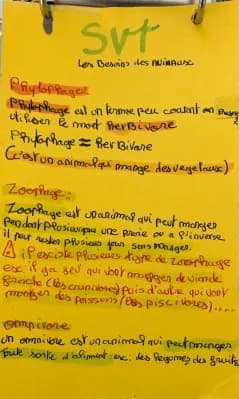 SVT
Les Besoins des ANIMAUX
Phytophage
Phytophage est un terme peu courant on
utiliser le mort HerBivore
Phytophage ≈ HerBivore
(c'est un animal qui mange des vegetaux)
Zoophage :
Zoophage est un animal qui peut manger
pendant plusieur une proie ou a l'inverse
il peut rester plusieurs jour sans manger.
⚠ il esciste plusieurs tipe de zoophage
esc: il y a seu qui vont manger de viande
franche (les carnivores) puis d'autre qui vont
manger des poissons (les piscivores).....
omnivore
un omnivore est un animal qui peut manger
toute sorte d'aliment esc: des legumes des fruits